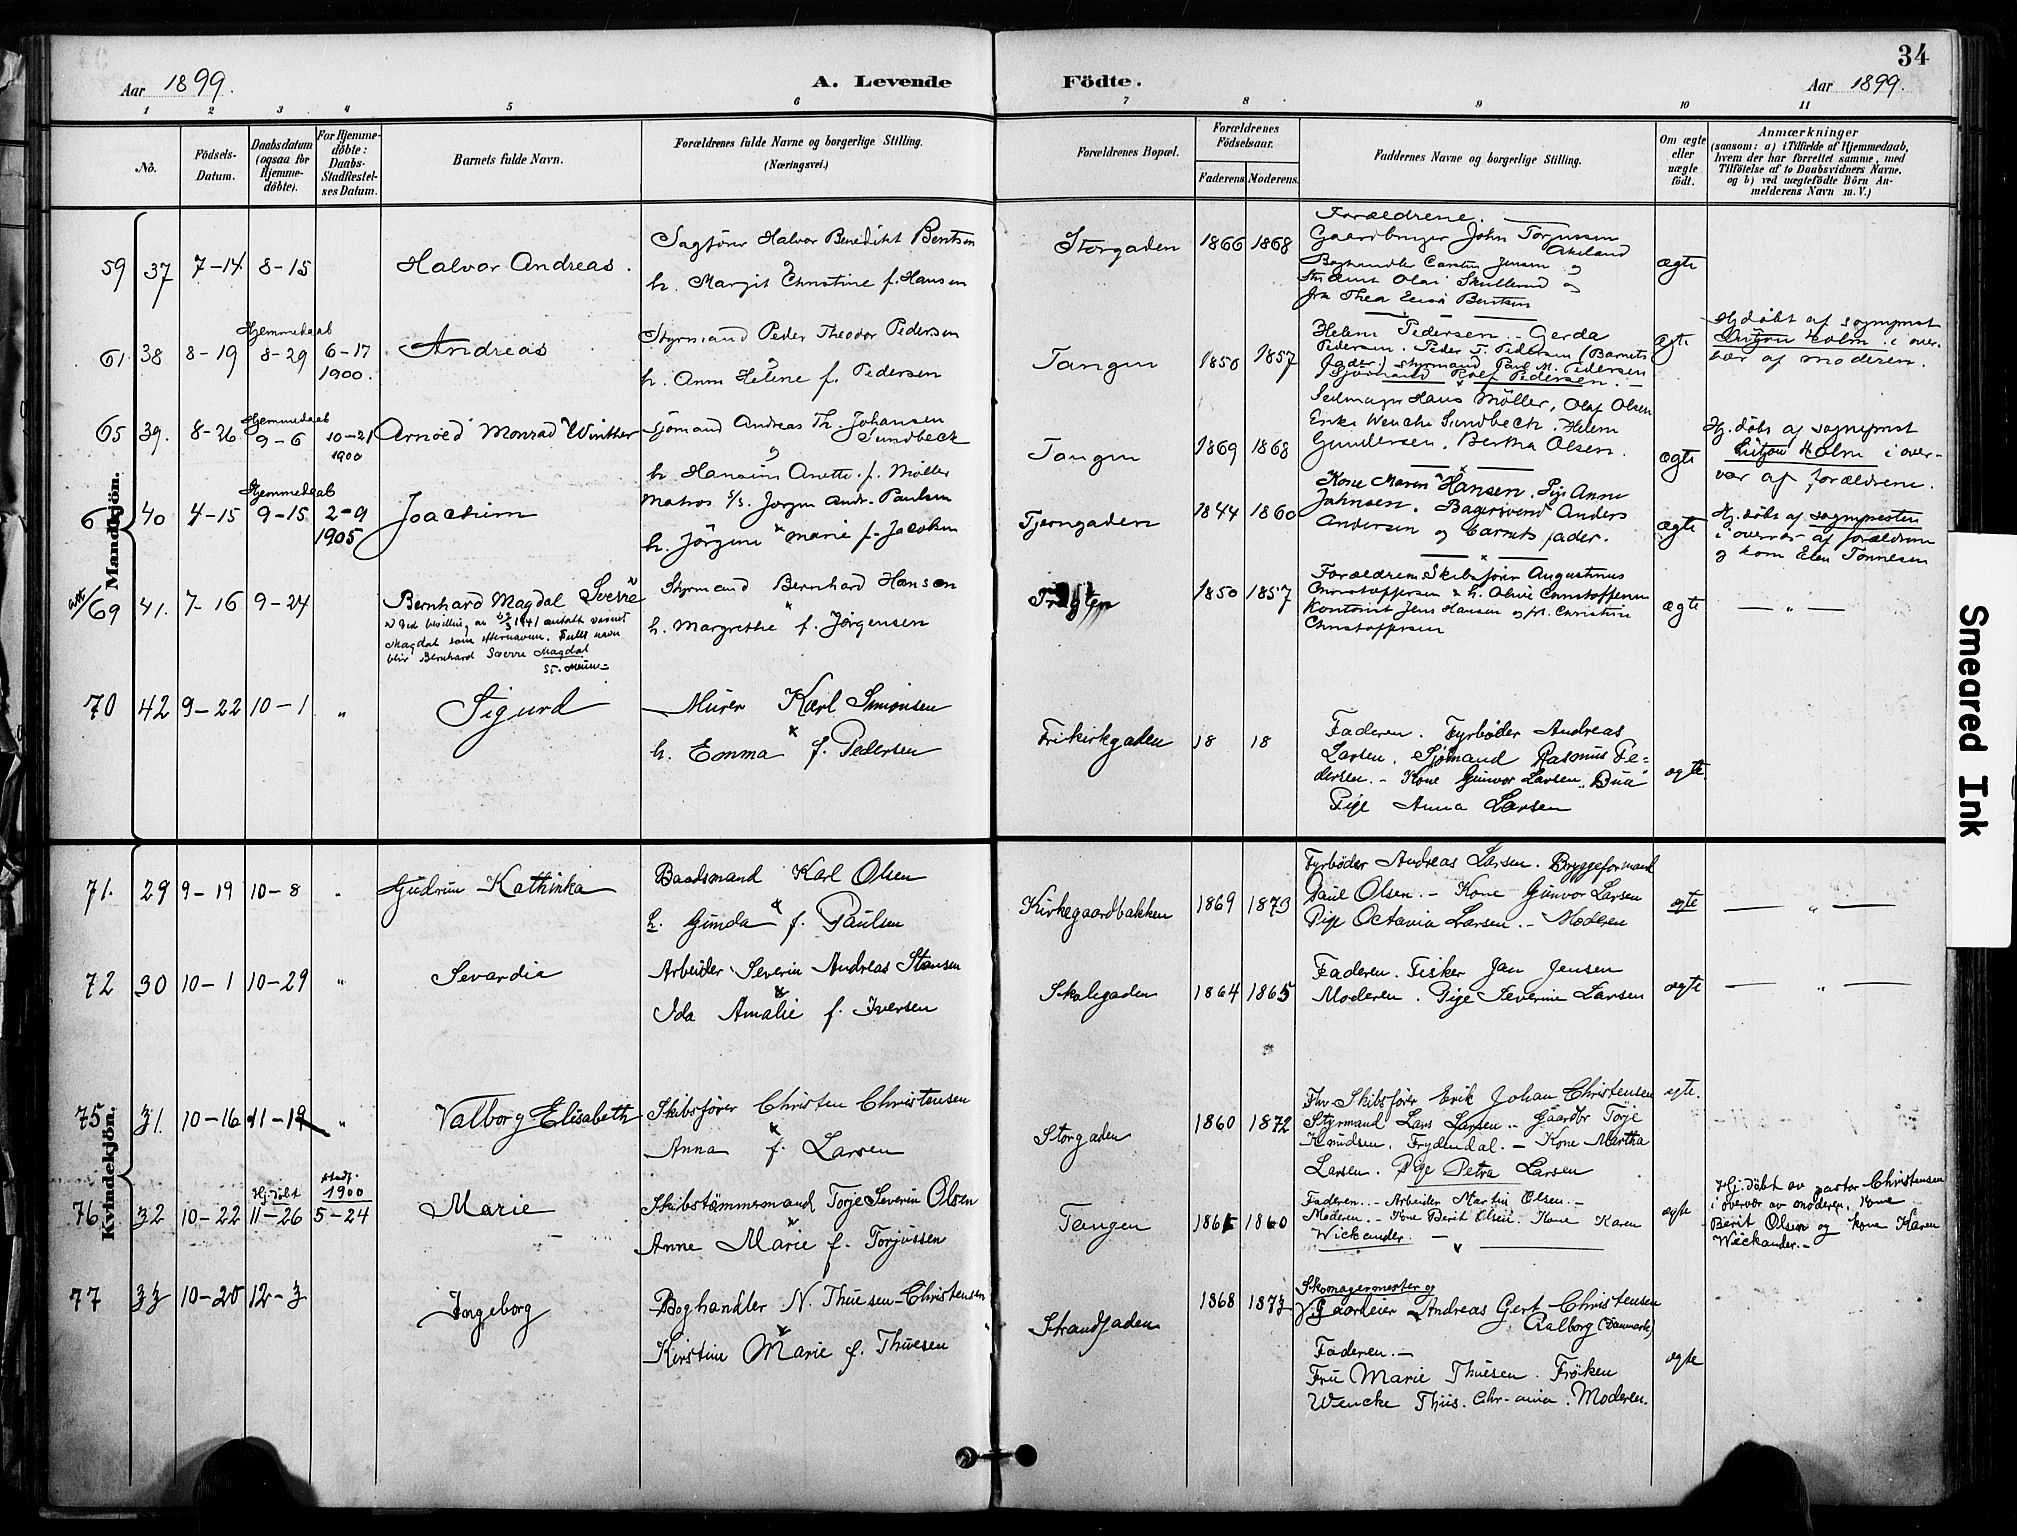 34
Aar 1899.
A. Levende Födte.
Aar 1899.
1 2 3 4 5 6 7 8 9 10 11
No.
Födsels-Datum.
Daabsdatum (ogsaa for Hjemme-döbte).
For Hjemme-döbte: Daabs-Stadfæstel-ses Datum.
Barnets fulde Navn.
Forældrenes fulde Navne og borgerlige Stilling.
(Næringsvei.)
Forældrenes Bopæl.
Forældrenes Födselsaar.
Faderens. Moderens.
Faddernes Navne og borgerlige Stilling.
Om ægte eller uægte födt.
Anmærkninger
(saasom: a) i Tilfælde af Hjemmedaab,
hvem der har forrettet samme, med
Tilföielse af to Daabsvidners Navne,
og b) ved uægtefödte Börn An-
melderens Navn m. V.)
Mandkjön.
59 37 7-14 8-15 Halvor Andreas.
Sagfører Halvor Benedikt Bentsen
h. Margit Christine f. Hansen
Storgaden 1866 1868
Forældrene.
Gaardbruger John Torjussen
Akeland
Boghandler Carsten Jensen og
Student Olai Skulberud og
Thea Bentsen
ægte
61 38 8-19 Hjemmedaab 8-29 6-17 1900. Andreas
Styrmand Peder Theodor Pedersen
h. Anna Helene f. Pedersen
Tangen 1850 1857
Helene Pedersen. Gerda
Pedersen. Peder T. Pedersen (Barnets
fader) styrmand Paul M. Pedersen
Sjømand Rolf Pedersen.
ægte
Hj.døbt af sogneprest
Holm i over-
vær af moderen.
65 39. 8-26 Hjemmedaab 9-6 10-21 1900 Arnold Monrad Winther
Sjømand Andreas Th. Johansen
Sundbeck
h. Hansine Anette f. Møller
Tangen 1869 1868
Seilmager Hans Møller, Olaf Olsen
Enke Wenche Sundbeck. Helene
Gundersen. Bertha Olsen.
ægte
Hj. døbt af sogneprest
Holm i over-
vær af forældrene.
6 40 4-15 Hjemmedaab 9-15 2-9 1905 Joachim
Matros Jørgen Andr. Paulsen
h. Jörgine Marie f. Jacobsen
Tjerngaden 1844 1860
Kone Maren Hansen. Pige Anne
Johnsen. Bagersvend Anders
Andersen og barnets fader.
ægte
Hj. døbt af sognepresten
i overvær af forældrene
og kone Elen Tønnesen
69 41. 7-16 9-24 Bernhard Magdal Sverre
Ved bevilling av 1941 antatt navnet
Magdal som efternavn. Fulle navn
blir Bernhard Sverre Magdal
Styrmand Bernhard Hansen
h. Margrethe f. Jørgensen
1850 1857
Forældrene Skibsfører Augustinus
Christoffersen & h. Olivie Christoffersen
Kontorist Jens Hansen og fr. Christine
Christoffersen
ægte — " —
70 42 9-22 10-1 " Sigurd
Murer Karl Simonsen
h. Emma f. Pedersen
Frikirkgaden 18 18
Faderen. Fyrbøder Andreas
Larsen. Sjømand Rasmus Pe-
dersen. - Kone Gunvor Larsen
Pige Anna Larsen
ægte
Kvindekjön.
71. 29 9-19 10-8 " Gudrun Kathinka
Baadsmand Karl Olsen
h. Gunda f. Paulsen
Kirkegaardbakken 1869 1873
Fyrbøder Andreas Larsen. Bryggeformand
Paul Olsen. - Kone Gunvor Larsen
Pige Octavia Larsen. - Moderen
ægte — " —
72 30 10-1 10-29 " Sevardia
Arbeider Severin Andreas Stensen
Ida Amalie f. Iversen
Skolegaden 1864 1865
Faderen. Fisker Jan Jensen
Moderen. Pige Severine Larsen
ægte — " —
75 31. 10-16 11-19 " Valborg Elisabeth
Skibsfører Christen Christensen
Anna f. Larsen
Storgaden 1860 1872
Fhv. Skibsfører Erik Johan Christensen
Styrmand Lars Larsen. - Gaardbr Torje
Knudsen. Frydendal. - Kone Martha
Larsen. Pige Petra Larsen
ægte.
76 32 10-22 Hj. døbt 11-26 stadf. 1900 5-24 Marie
Skibstømmermand Torje Severin Olsen
Anne Marie f. Torjussen
Tangen 1861 1860
Faderen. - Arbeider Martin Olsen. -
Moderen. - Kone Berit Olsen. Kone Karen
Wickander. -
ægte
Hj. døbt av pastor Christensen
i overvær av moderen, kone
Berit Olsen og kone Karen
Wickander. -
77 33 10-20 12-3 Ingeborg
Boghandler N. Thuesen-Christensen
Kirstine Marie f. Thuesen
Strandgaden 1868 1873
Skomagermester og
Gaardeier Andreas Gert Christensen
Aalborg (Danmark)
Faderen. -
Fru Marie Thuesen. Frøken
Wencke Thiis. Chr-ania. Moderen.
ægte
Smeared Ink